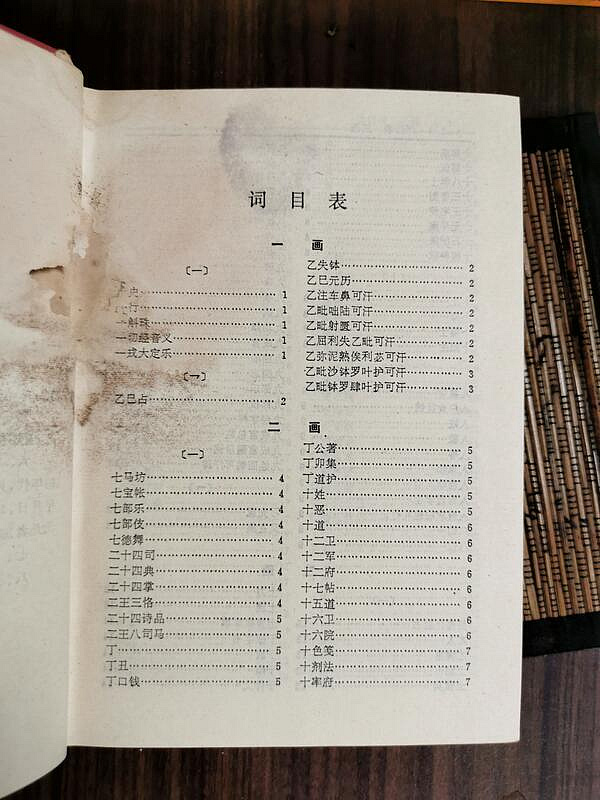 词目表
一画
〔一〕
史……1
一行……1
一斛珠……1
一切经音义……1
一戎大定乐……1
〔乛〕
乙巳占……2
乙失钵……2
乙巳元历……2
乙注车鼻可汗……2
乙毗咄陆可汗……2
乙毗射匮可汗……2
乙屈利失乙毗可汗……2
乙弥泥熟俟利苾可汗……2
乙毗沙钵罗叶护可汗……3
乙毗钵罗肆叶护可汗……3
二画
〔一〕
七马坊……4
七宝帐……4
七部乐……4
七部伎……4
七德舞……4
二十四司……4
二十四典……4
二十四掌……4
二王三恪……4
二十四诗品……5
二王八司马……5
丁……5
丁丑……5
丁口钱……5
丁公著……5
丁卯集……5
丁道护……5
十姓……5
十恶……5
十道……6
十二卫……6
十二军……6
十二府……6
十七帖……6
十五道……6
十六卫……6
十六院……6
十色笺……7
十剂法……7
十率府……7